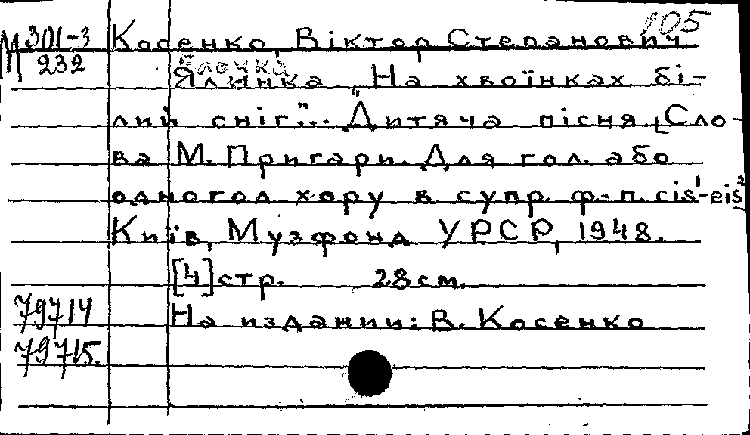 105
М 301-3
232
Косенко, Віктор Степанович
Ёлочка
Ялинка „На хвоїнках бі-
лий сніг"... Дитяча пісня. [Сло-
ва М. Пригари. Для гол. або
одногол. хору в супр. ф.-п. cis¹-eis²
Київ, Музфонд УРСР, 1948.
[4] стр. 28 см.
79714
На издании: В. Косенко
79715.